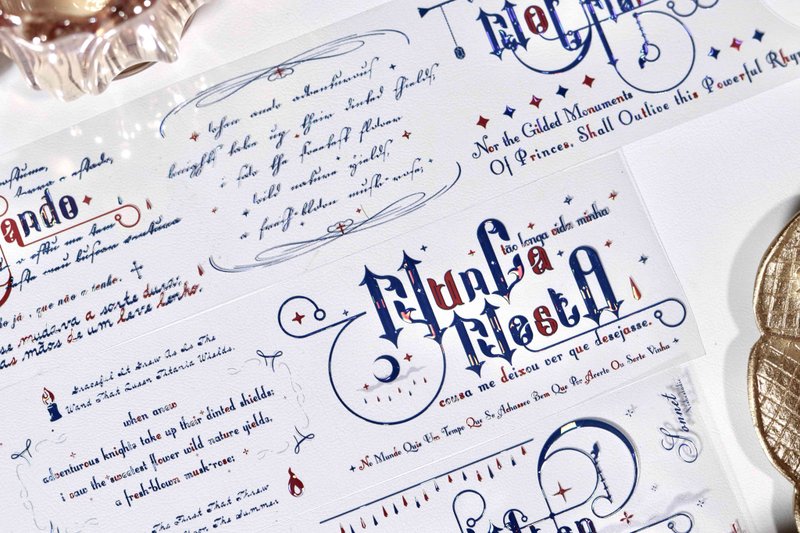 Nor the Gilded Monuments
Of Princes, Shall Outlive this Powerful Rhy
when anew adventurous
knights take up their dinted shields;
i saw the sweetest flower
wild nature yields,
a fresh-blown musk-rose;
ando
já, que não o tenho,
se mudava a sorte dura;
as mãos de um leve lenho.
Nunca
tão longa vida minha
Nesta
cousa me deixou ver que desejasse.
No Mundo Quis Um Tempo Que Se Achasse O Bem Que Por Acerto Ou Sorte Vinha
Graceful It Grew As Is The
Wand That Queen Titania Wields.
when anew
adventurous knights take up their dinted shields:
i saw the sweetest flower wild nature yields,
a fresh-blown musk-rose;
The First That Threw
Upon The Summer
Sonnet